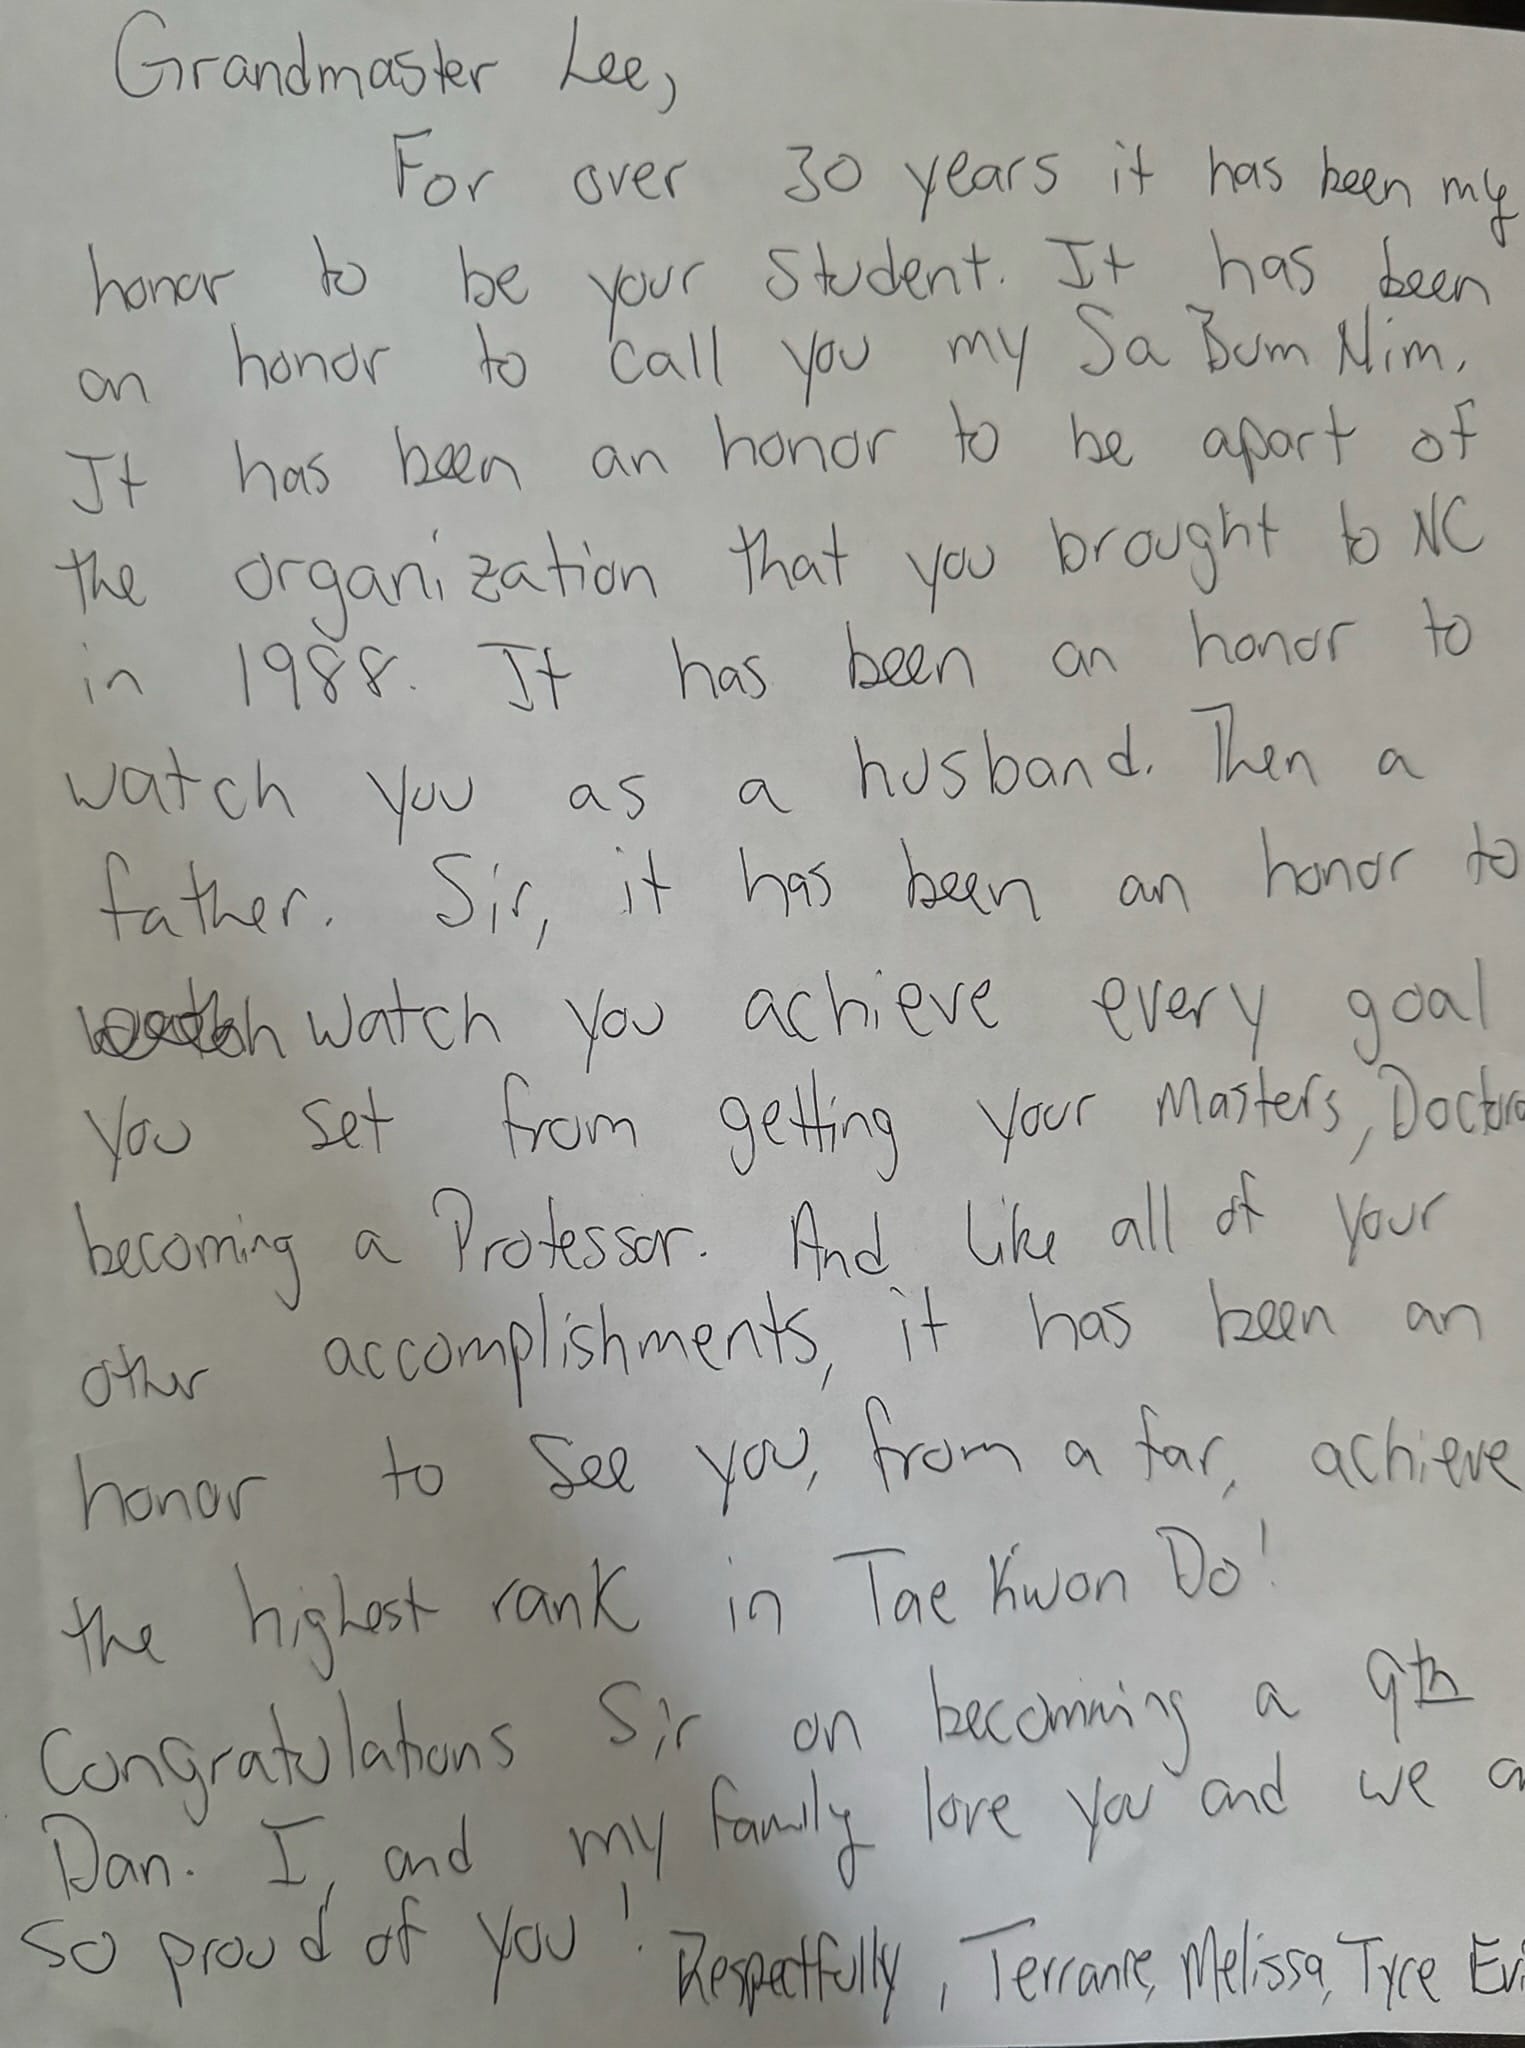 Grandmaster Lee,
For over 30 years it has been my
honor to be your student. It has been
an honor to call you my Sa Bum Nim.
It has been an honor to be apart of
the organization that you brought to NC
in 1988. It has been an honor to
watch you as a husband. Then a
father. Sir, it has been an honor to
watch you achieve every goal
you set from getting your Masters,
becoming a Professor. And like all of your
other accomplishments, it has been an
honor to see you, from a far, achieve
the highest rank in Tae Kwon Do!
Congratulations Sir on becoming a 9th
Dan. I, and my family love you and we
so proud of you! Respectfully, Terrance, Melissa, Tyce